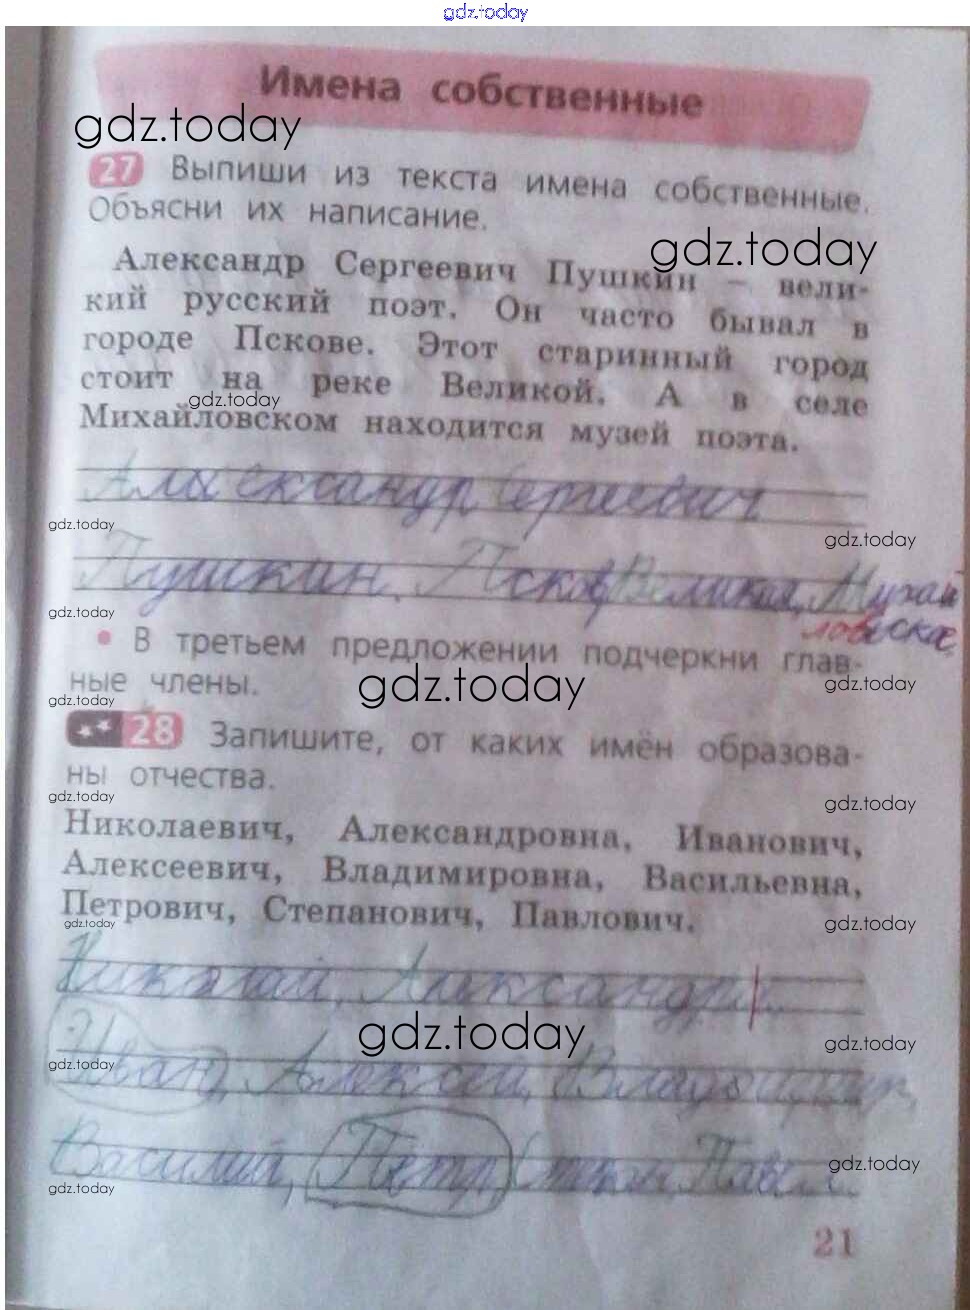 gdz.today
Имена собственные
gdz.today
27 Выпиши из текста имена собственные.
Объясни их написание.
gdz.today
Александр Сергеевич Пушкин – вели-
кий русский поэт. Он часто бывал в
городе Пскове. Этот старинный город
стоит на реке Великой. А в селе
gdz.today
Михайловском находится музей поэта.
Александр Сергеевич
gdz.today
gdz.today
Пушкин, Псков, Великая, Михай
gdz.today
ловское.
• В третьем предложении подчеркни глав-
ные члены.
gdz.today
gdz.today
gdz.today
28 Запишите, от каких имён образова-
ны отчества.
gdz.today
gdz.today
Николаевич, Александровна, Иванович,
Алексеевич, Владимировна, Васильевна,
Петрович, Степанович, Павлович.
gdz.today
gdz.today
Николай, Александр
gdz.today
gdz.today
gdz.today
Иван, Алексей, Владимир,
Василий, Петр, Степан, Павел.
gdz.today
gdz.today
21